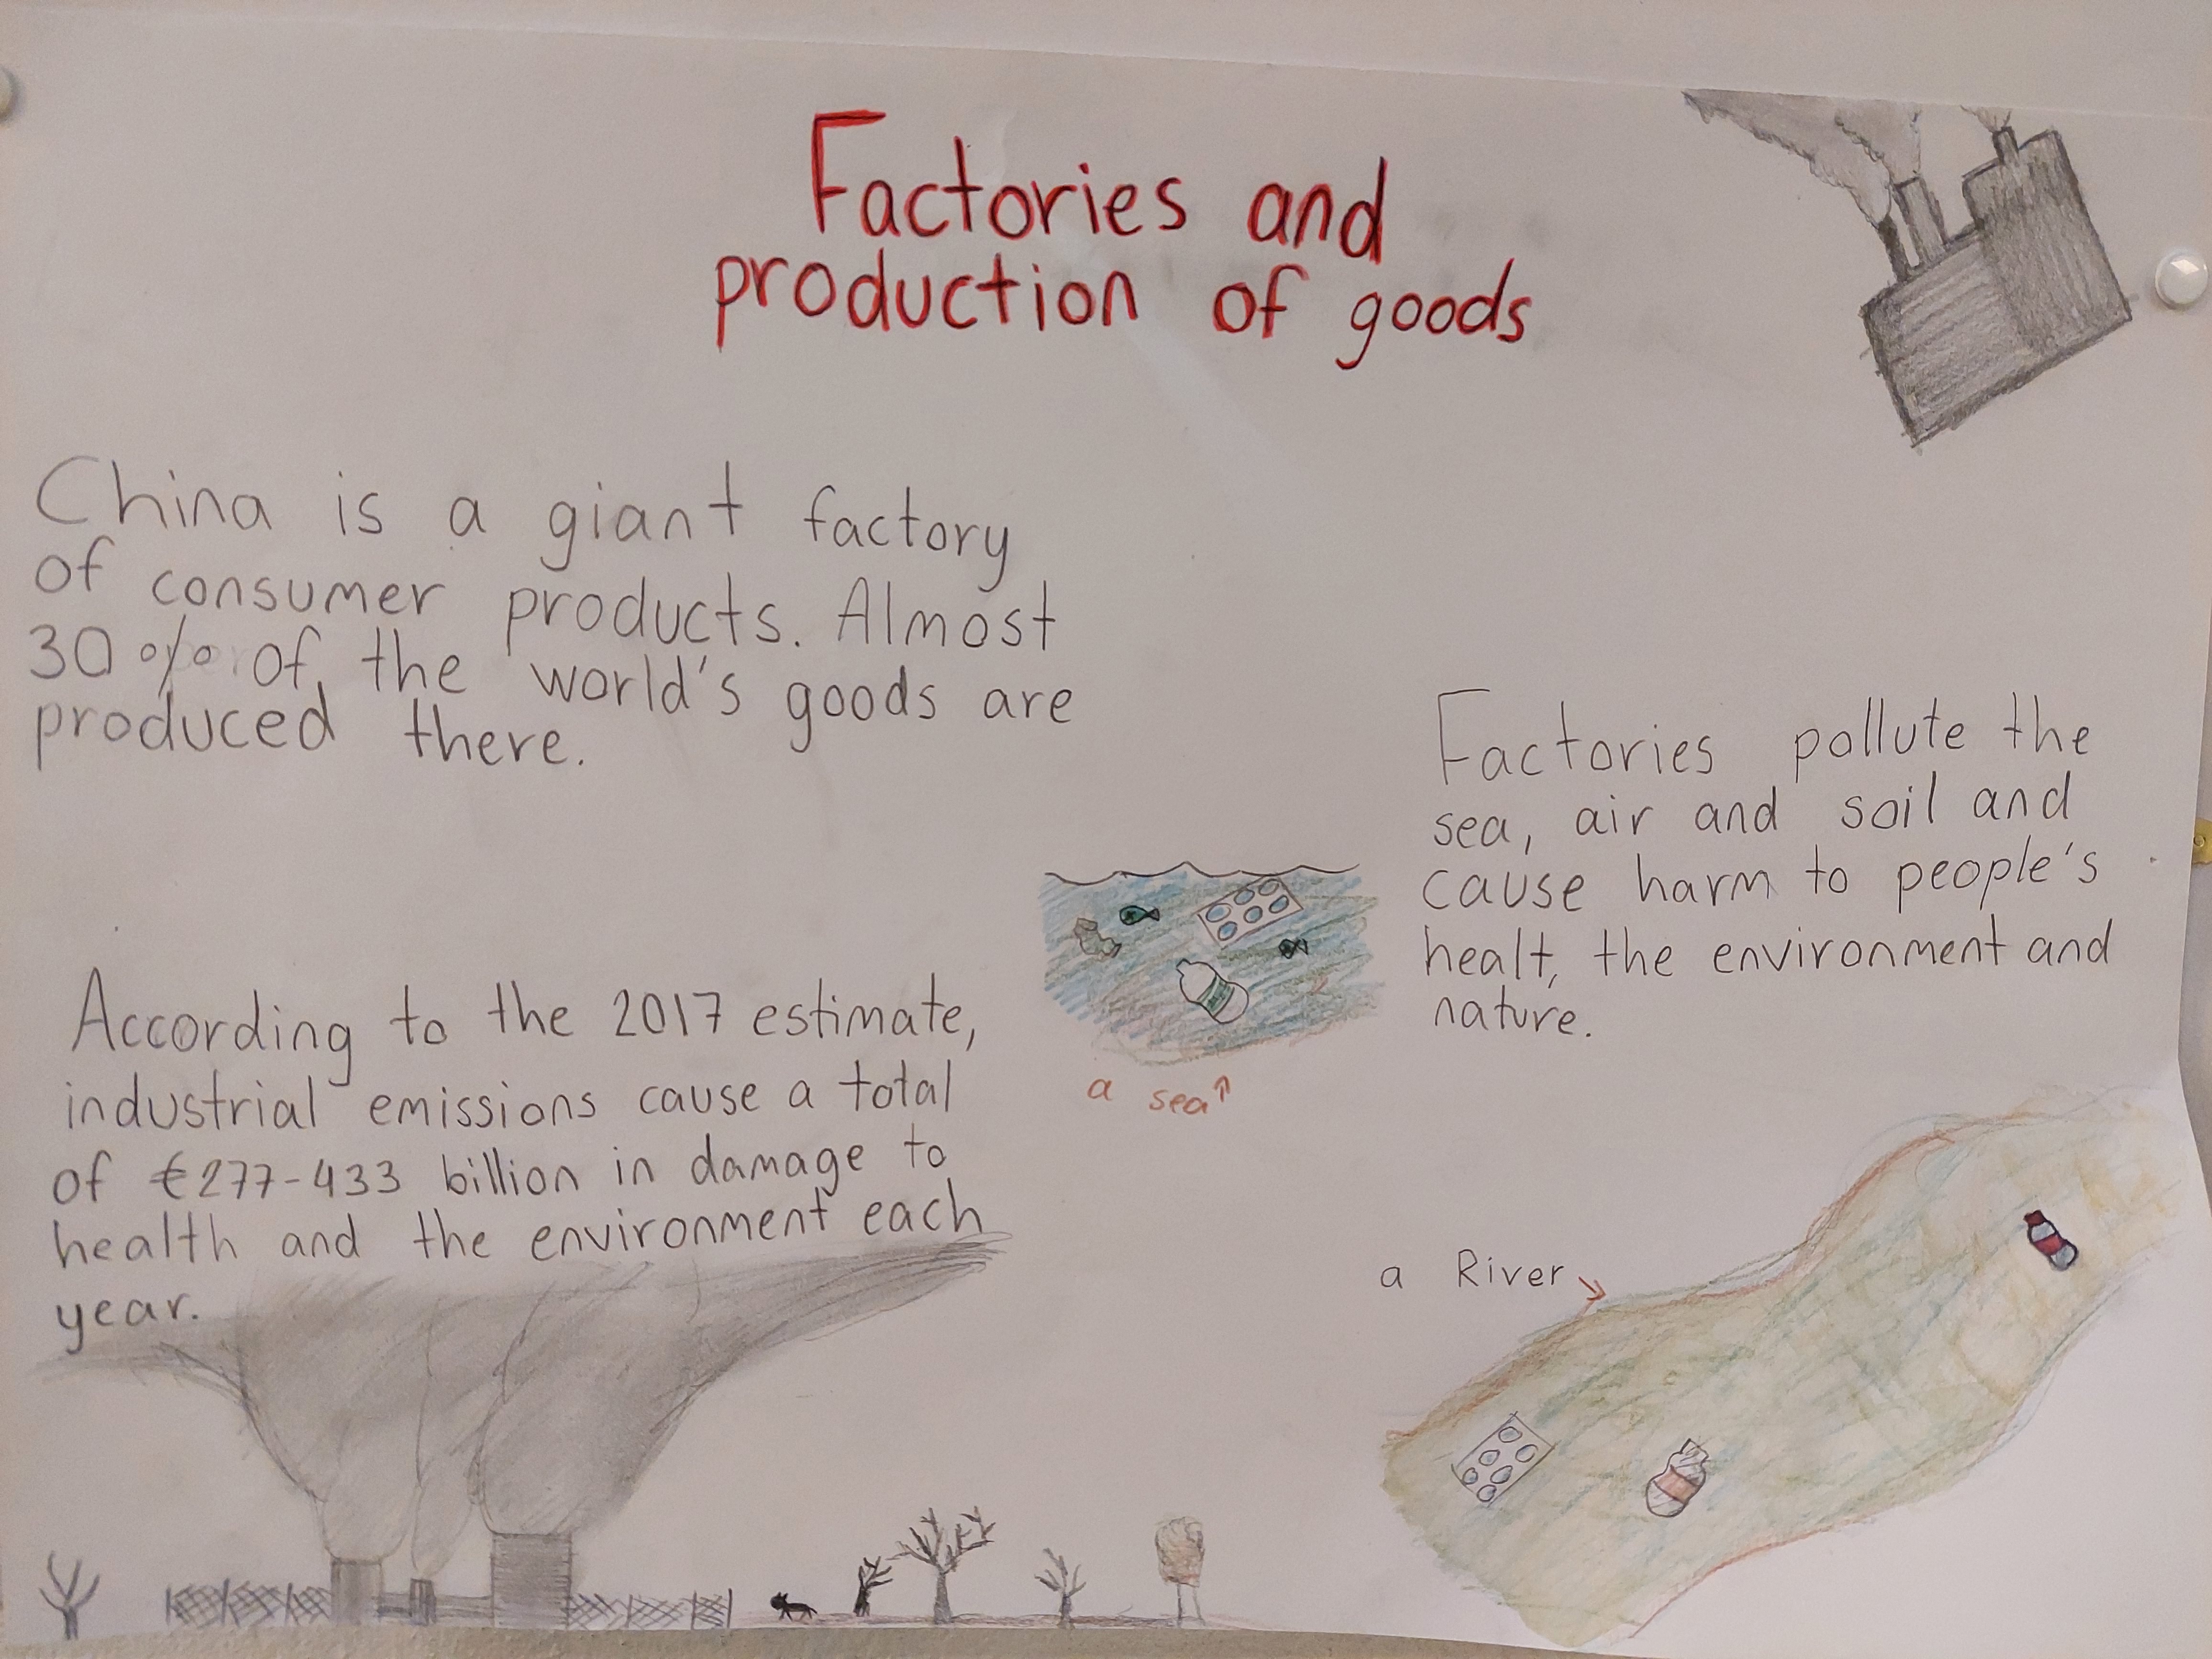 Factories and
production of goods
China is a giant factory
of consumer products. Almost
30% of the world's goods are
produced there.
Factories pollute the
sea, air and soil and
cause harm to people's
healt, the environment and
nature.
a sea↑
According to the 2017 estimate,
industrial emissions cause a total
of €277-433 billion in damage to
health and the environment each
year.
a River